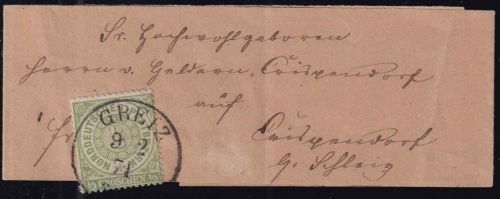 Sr. Hochwohlgeboren
Herrn v. Geldern, Crispendorf
auf
fr.
Crispendorf
b. Schleiz
GREIZ
9 2
71
NORDDEUTSCHER
GROSCHEN